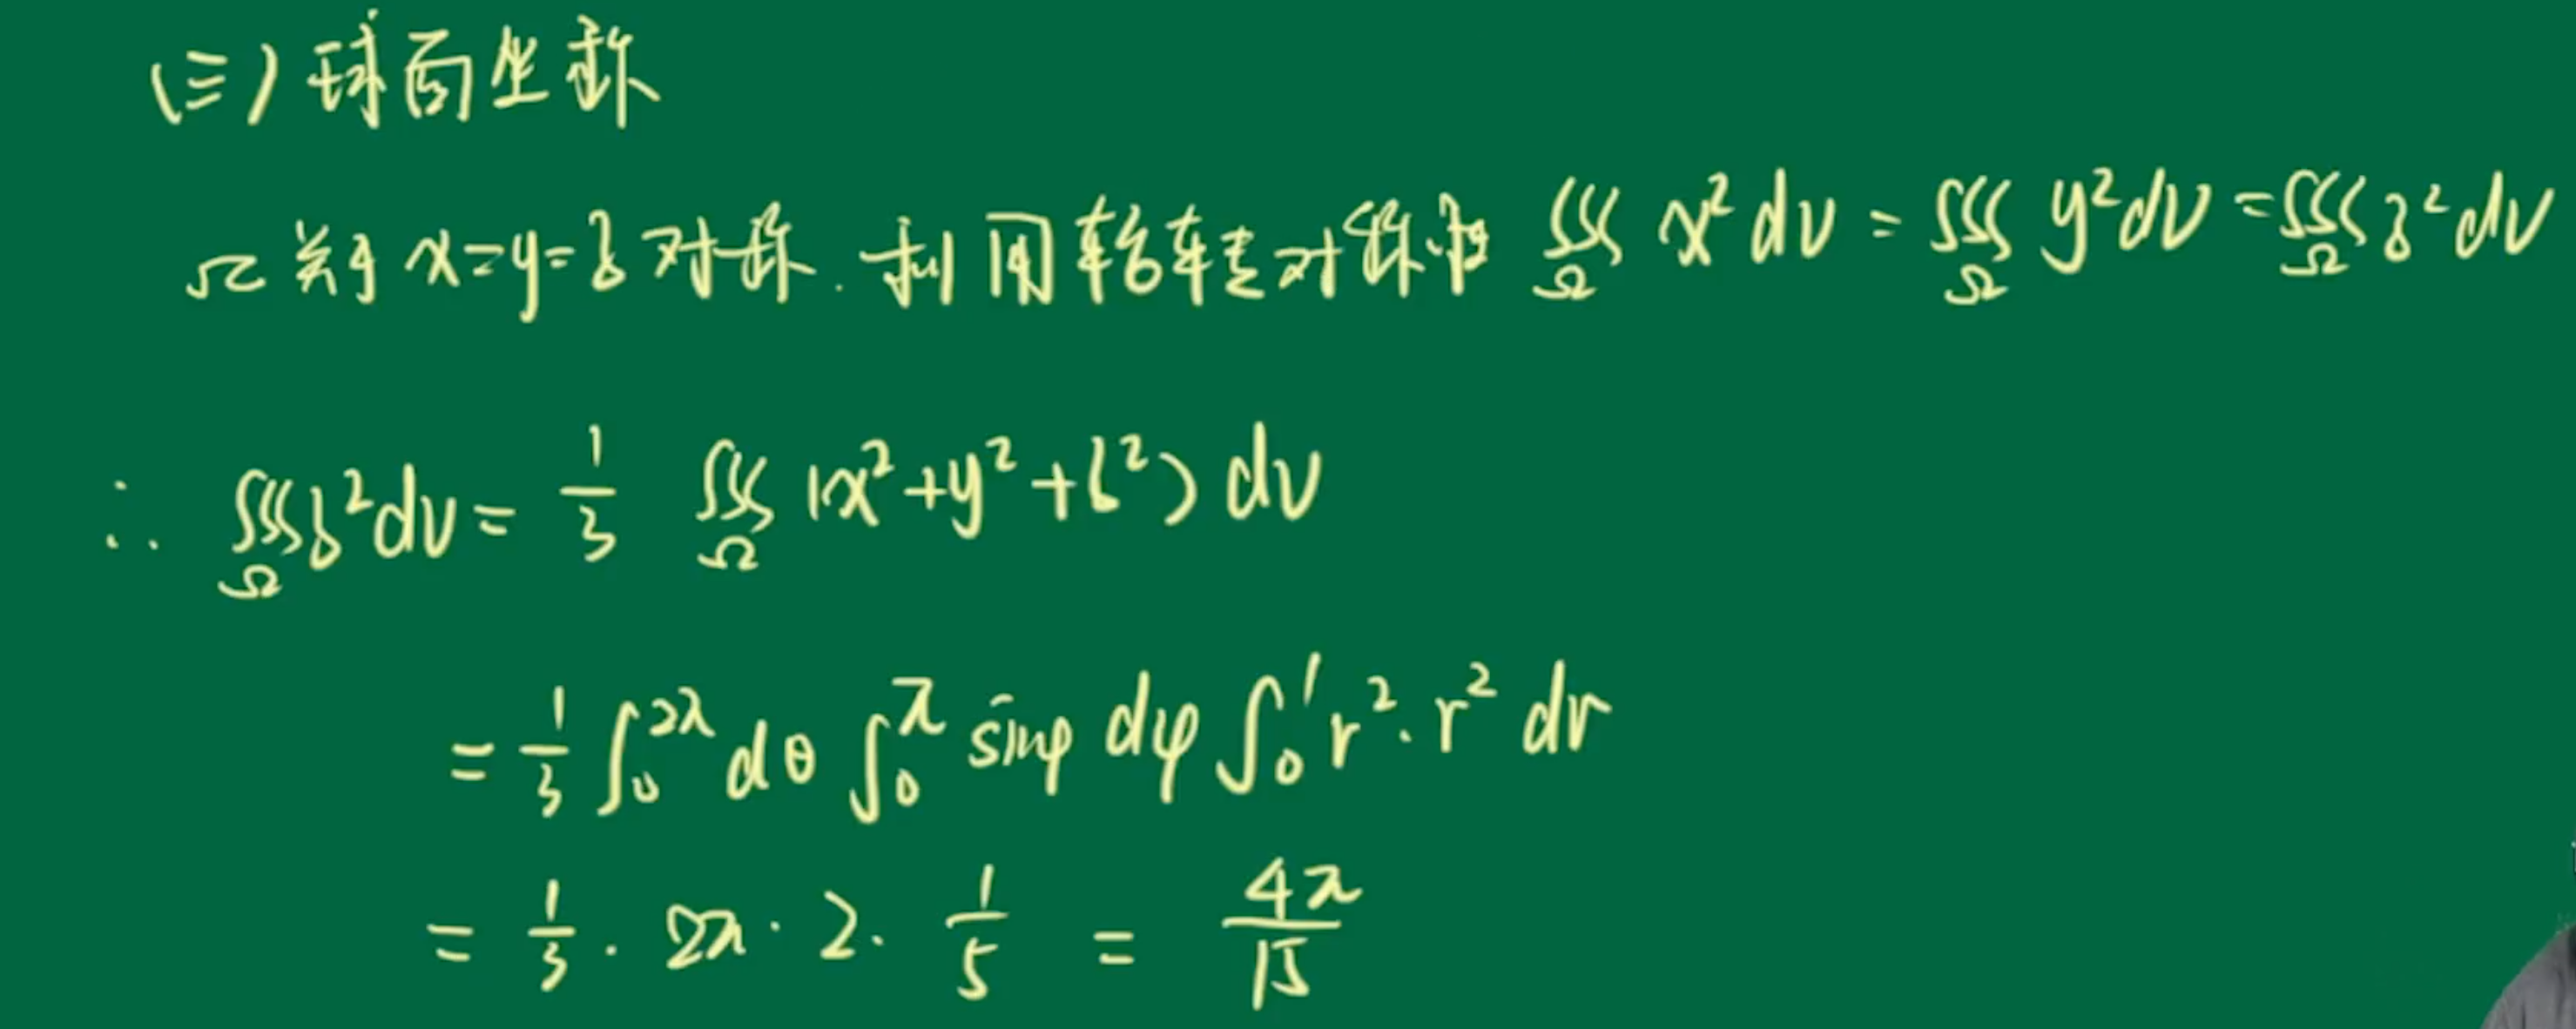 (三) 球面坐标
Ω关于 x=y=z 对称. 利用轮转对称性 ∭_Ω x² dv = ∭_Ω y² dv = ∭_Ω z² dv
∴ ∭_Ω z² dv = 1/3 ∭_Ω (x²+y²+z²) dv
= 1/3 ∫₀^2π dθ ∫₀^π sinφ dφ ∫₀^1 r²·r² dr
= 1/3 · 2π · 2 · 1/5 = 4π/15